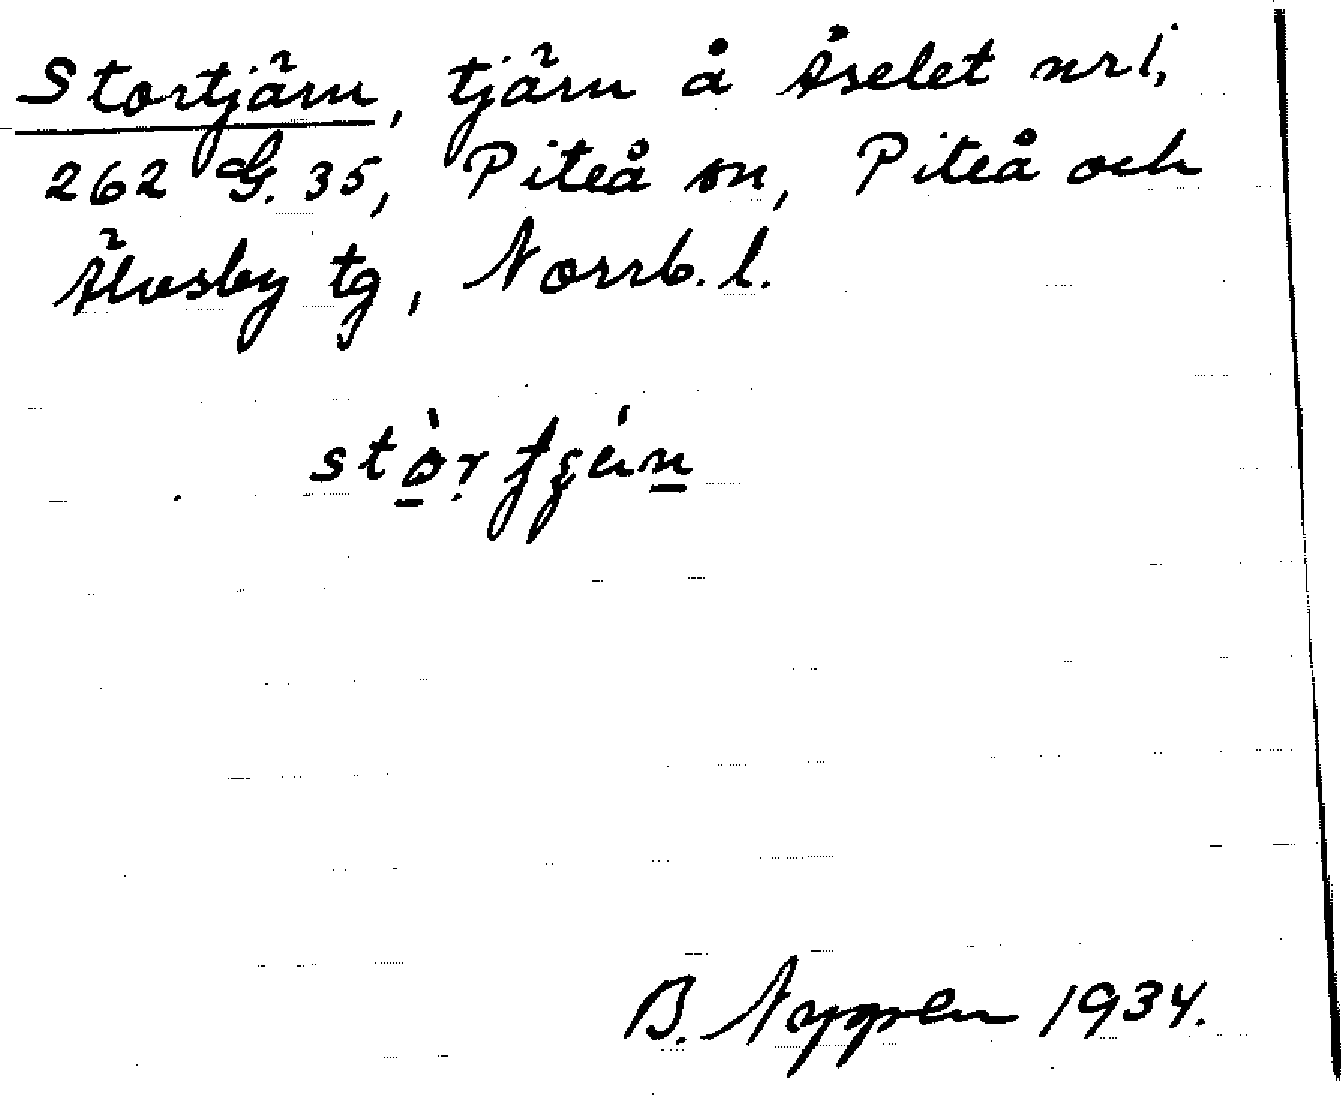 Stortjärn, tjärn å Åselet nr 1,
262 G. 35, Piteå sn, Piteå och
Älvsby tg, Norrb. l.
B. Nygren 1934.